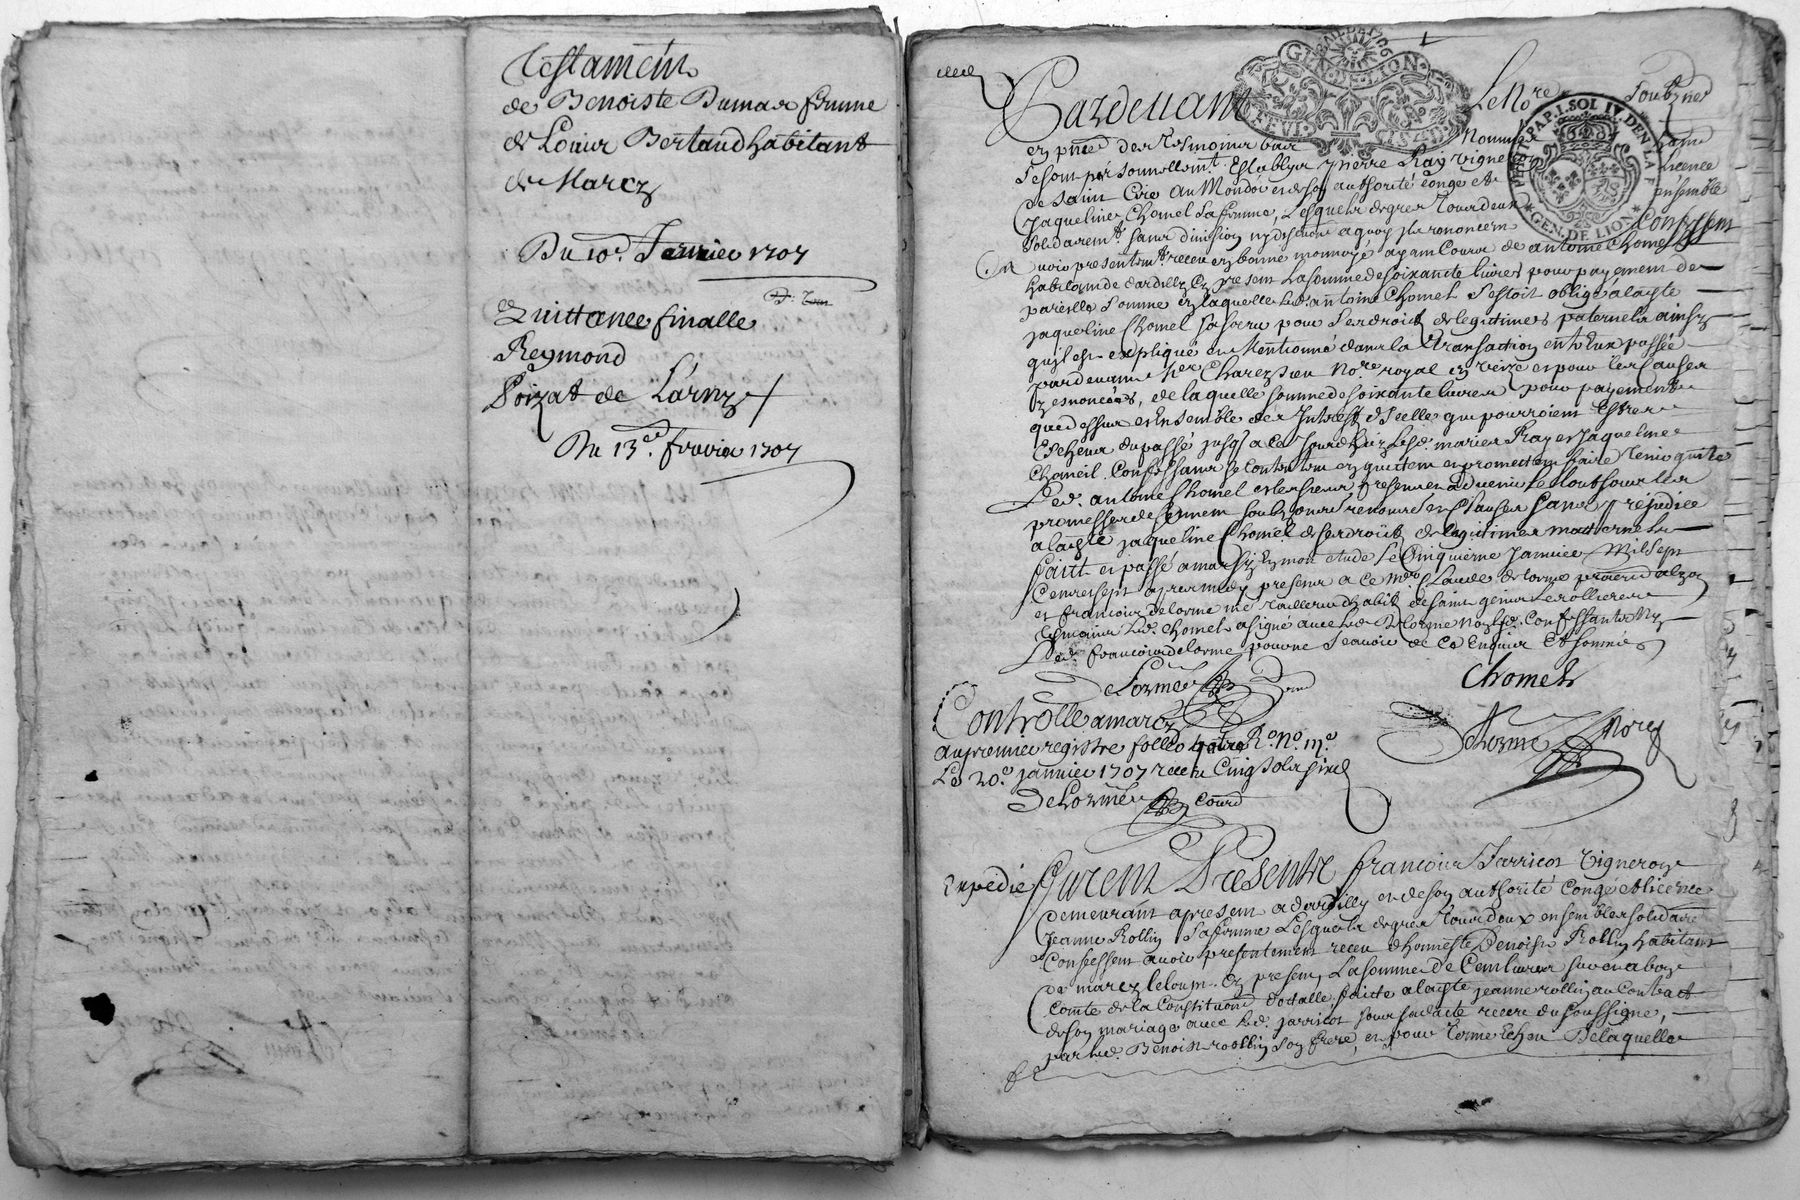 Testament
de Benoiste Dumas femme
de Louis Bertaud habitant
de Marcy
Du 10e. Janvier 1707
Quittance finalle
Reymond
Poizat de Larny
Du 13e. fevrier 1707
Pardevant Le No.re Soubzne
en pnce des Tesmoins bas Nommés
Se sont personnellemt. Establys pierre Ray vigne
de saint Cire au Mondor et de son authorité conge et Licence
Jaqueline Chomel sa femme, Lesquels de gres tous deux ensemble
solidaremt. sans division ny discution a quoy ils renoncent Confessent
avoir presentemt. receu en bonne monnoye ayant cours de antoine Chomel
habitant de dardilly cy present La somme de soixante livres pour payement de
pareille somme en laquelle led. antoine Chomel s'estoit obligé a laditte
jaqueline Chomel sa soeur pour ses droits de legitimes paternels ainsy
qu'il est expliqué et Mentionné dans la transaction entre Eux passée
pardevant Charezieu No.re royal en veize et pour les causes
y enoncées, de laquelle somme de soixante livres pour payement
que dessus et Ensemble des Interest d'Icelle qui pourroient Estre
Escheus du passé jusq. a ce Jourdhuy Lesd. mariés Ray et Jaqueline
Chomel Confessant se contentent en quittent et promettent faire tenir quitte
Led. antoine Chomel et les siens presents et advenir Le tout sous les
promesses de serment soubzmon renons. et Clauses sans prejudice
a laditte jaqueline Chomel de ses droits de legitimes maternels
Faitt et passé a marcy en mon etude Le Cinquieme Janvier Mil sept
Cent et sept apres midy presents a ce Mre Claude delorme
et francois delorme me Tallieur d'habit de saint genis Les ollieres
Tesmoins Led. Chomel a signé avec Led. Delorme Non Lesd. Confessants Ny
Led. francois delorme pour ne Scavoir de ce Enquis Et sommés
Lorme Chomel
Delorme Nore
Controlle a marcy
au premier registre folio quatre Ro. No. mo.
Le 20e. janvier 1707 receu Cinq sols six d
DeLorme
Expedié
Furent Presents francois Jarricot vigneron
demeurant a present a dardilly et de son authorité Congé et licence
Jeanne Rollin sa femme Lesquels de gres tous deux ensemble solidaire
Confessent avoir presentement receu d'honneste Benoist Rollin habitant
de marcy le loup Cy present La somme de Cent livres
Comte de la Constitution dottalle faitte a laditte jeanne rollin au Contract
de son mariage avec Led. jarricot receu du soussigné,
par led. Benoist roollin son frere, et pour terme Echeu De laquelle